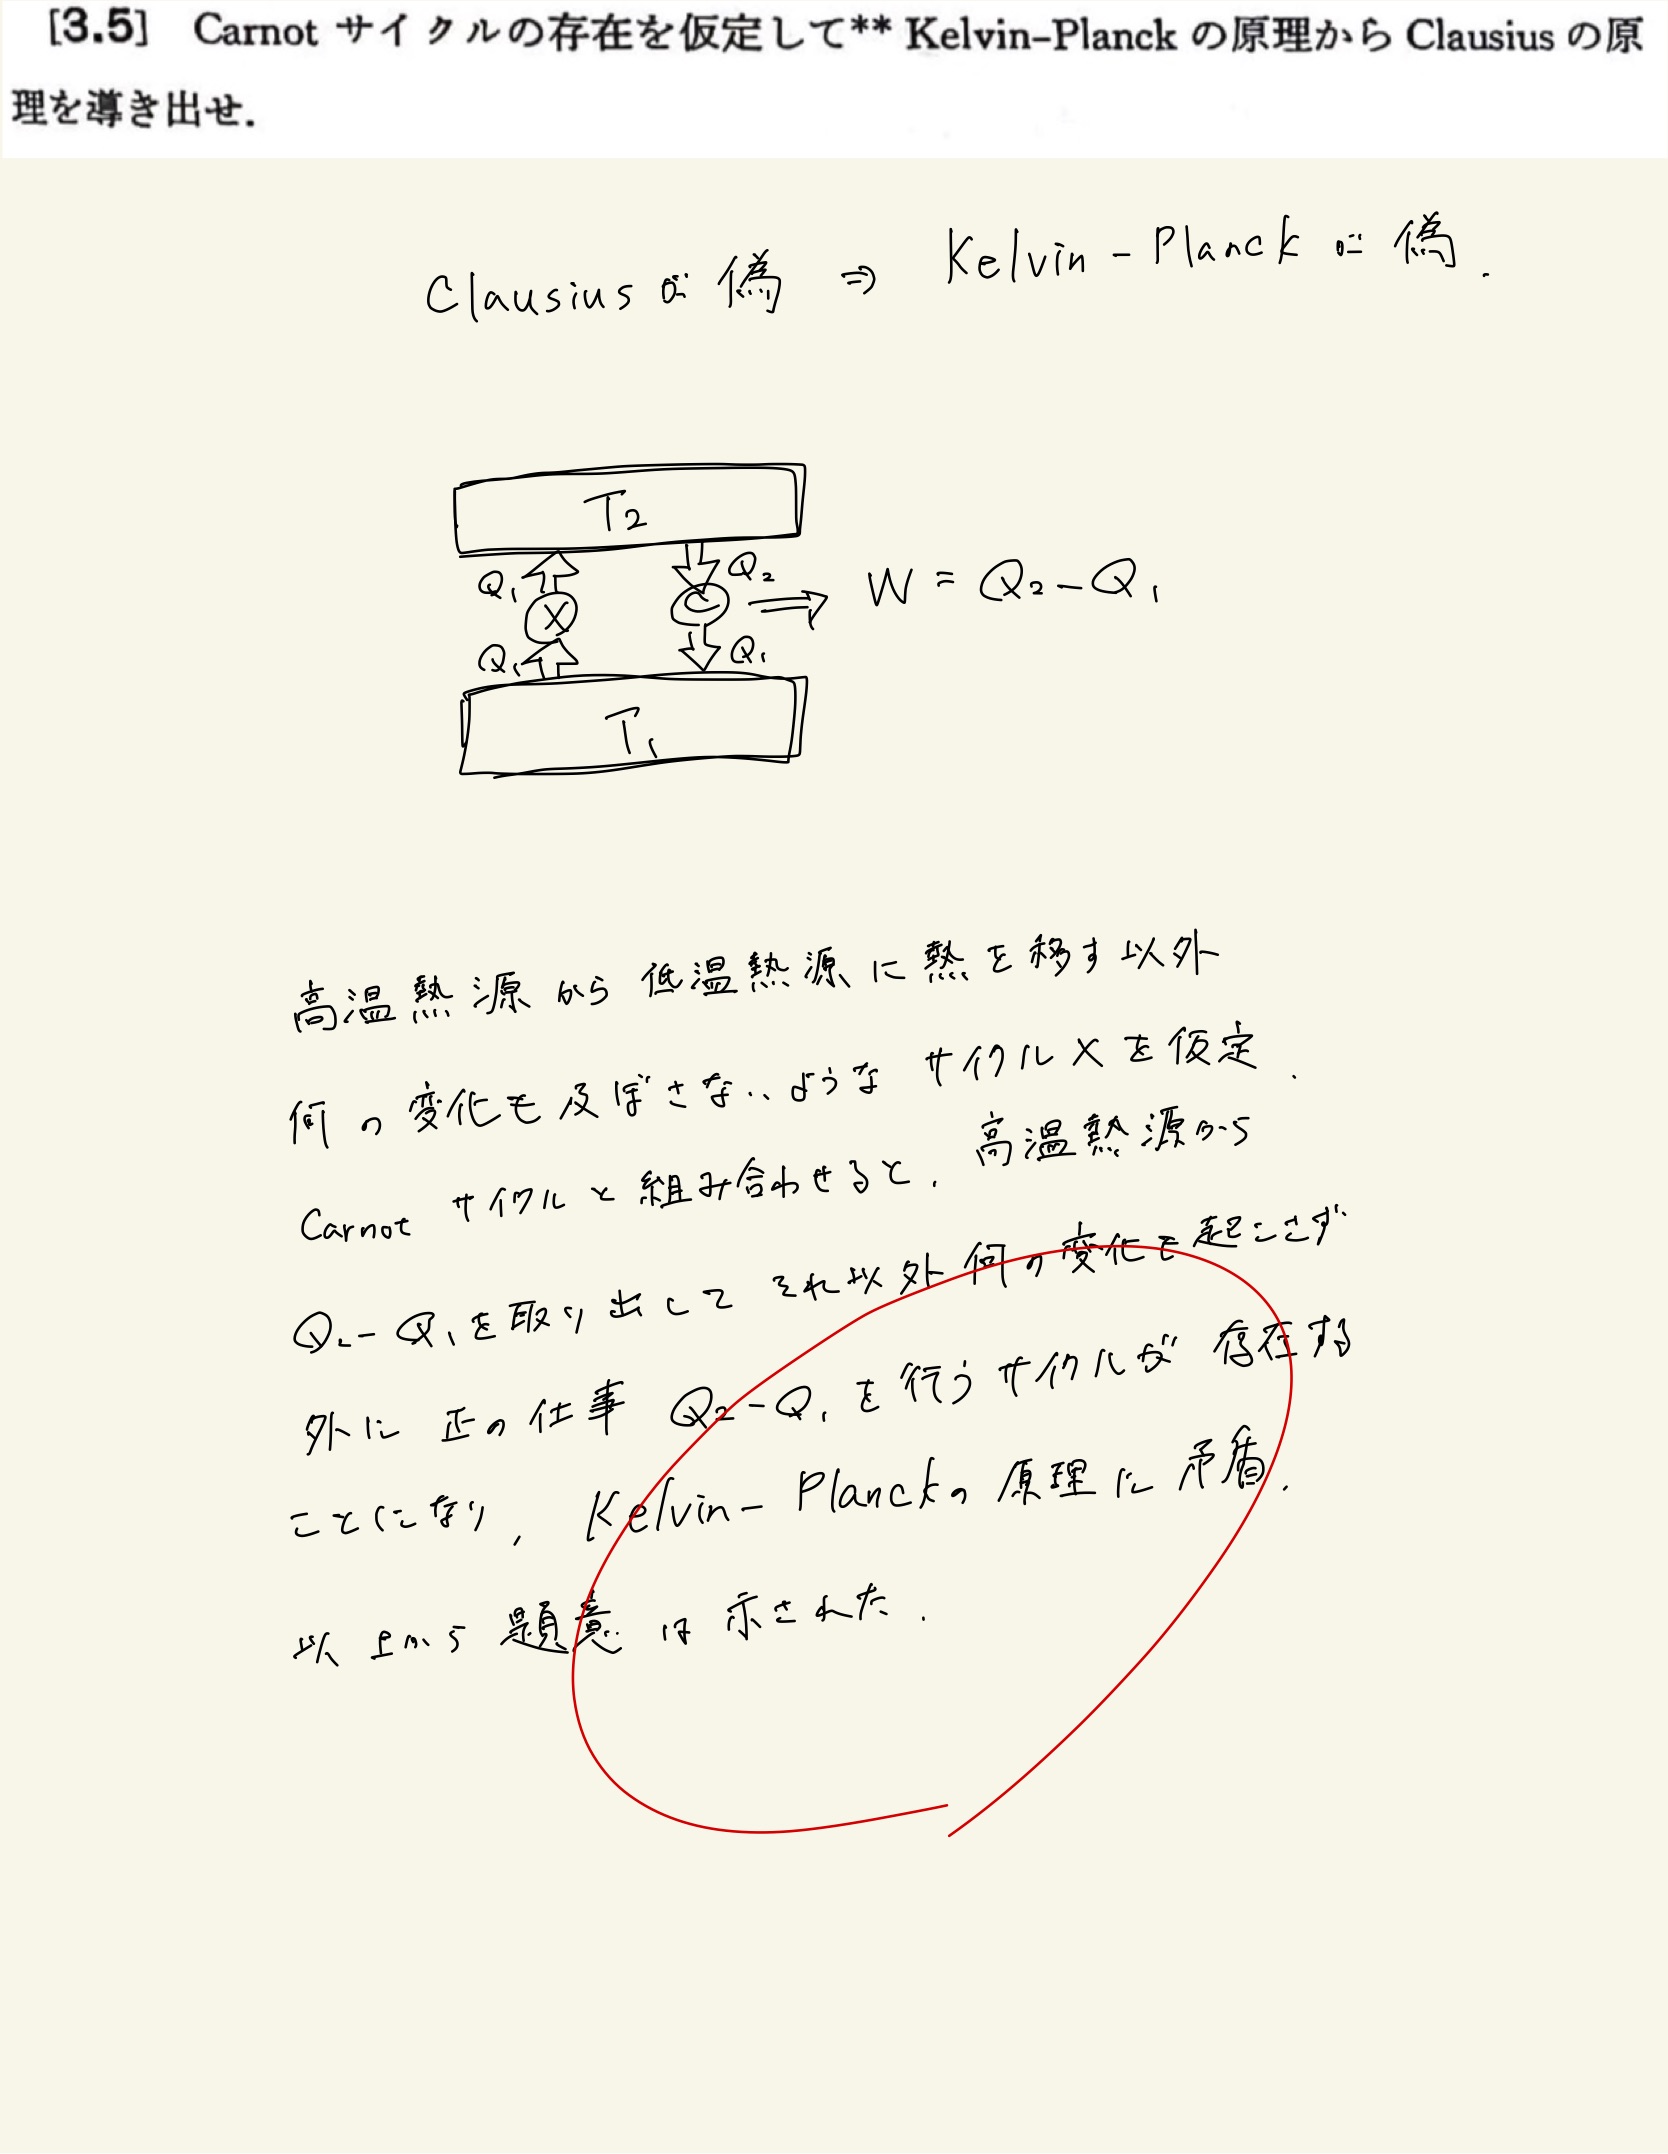 [3.5] Carnot サイクルの存在を仮定して** Kelvin–Planck の原理から Clausius の原
理を導き出せ.
Clausius が 偽 ⇒ Kelvin - Planck が 偽.
T₂
Q₁ Q₂
X C ⇒ W = Q₂ - Q₁
Q₁ Q₁
T₁
高温熱源から低温熱源に熱を移す以外
何の変化も及ぼさないようなサイクルXを仮定.
Carnot サイクルと組み合わせると, 高温熱源から
Q₂-Q₁を取り出してそれ以外何の変化も起こさず
外に正の仕事 Q₂-Q₁を行うサイクルが存在する
ことになり, Kelvin-Planckの原理に矛盾.
以上から題意は示された.